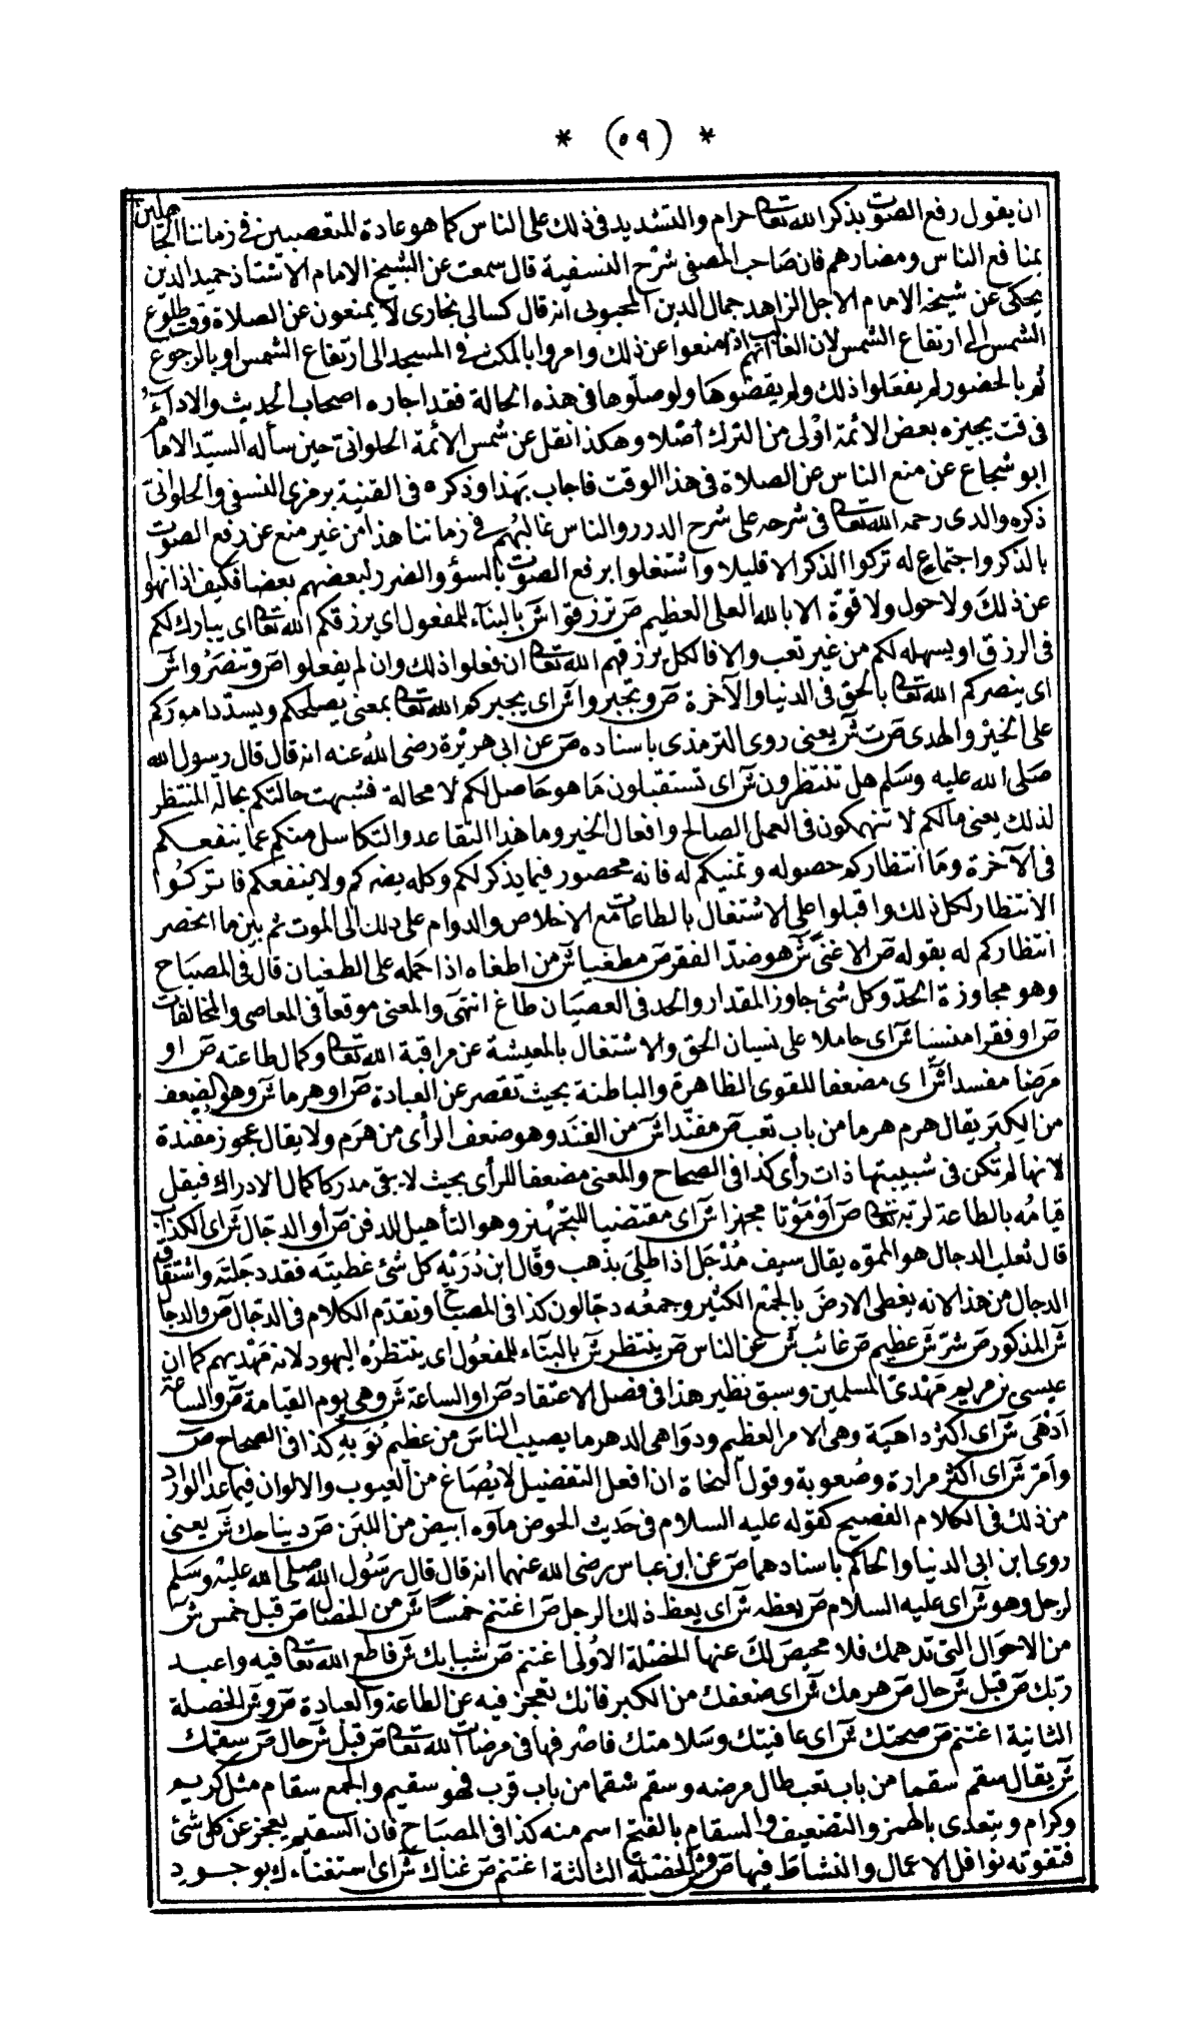 * (٥٩) *
ان يقول رفع الصوت بذكر الله تعالى حرام والتشديد فى ذلك على الناس كما هو عادة المتعصبين فى زماننا الجاهلين
بمنافع الناس ومضارهم فان صاحب المصفى شرح النسفية قال سمعت عن الشيخ الامام الاستاذ حميد الدين
يحكى عن شيخه الامام الاجل الزاهد جمال الدين المحبوبى انه قال كسالى بخارى لا يمنعون عن الصلاة وقت طلوع
الشمس الى ارتفاع الشمس لان الغالب انهم اذا منعوا عن ذلك وامروا بالمكث فى المسجد الى ارتفاع الشمس او بالرجوع
ثم بالحضور لم يفعلوا ذلك ولم يقضوها ولو صلوها فى هذه الحالة فقد اجازه اصحاب الحديث والاداء
فى وقت يجيزه بعض الائمة اولى من الترك اصلا وهكذا نقل عن شمس الائمة الحلوانى حين سأله السيد الامام
ابو شجاع عن منع الناس عن الصلاة فى هذا الوقت فاجاب بهذا وذكره فى القنية برمزى النسفى والحلوانى
ذكره والدى رحمه الله تعالى فى شرحه على شرح الدرر والناس غالبهم فى زماننا هذا من غير منع عن رفع الصوت
بالذكر واجتماع له تركوا الذكر الا قليلا واشتغلوا برفع الصوت بالسؤ والضرر لبعضهم بعضا فكيف اذا نهوا
عن ذلك ولا حول ولا قوة الا بالله العلى العظيم ص ترزقوا ش بالبناء للمفعول اى يرزقكم الله تعالى اى يبارك لكم
فى الرزق او يسهله لكم من غير تعب والا فالكل يرزقهم الله تعالى ان فعلوا ذلك وان لم يفعلوا ص وتنصروا ش
اى ينصركم الله تعالى بالحق فى الدنيا والآخرة ص وتجبروا ش اى يجبركم الله تعالى بمعنى يصلحكم ويسدد اموركم
على الخير والهدى ص ت ش يعنى روى الترمذى باسناده ص عن ابى هريرة رضى الله عنه انه قال قال رسول الله
صلى الله عليه وسلم هل تنتظرون ش اى تستقبلون ما هو حاصل لكم لا محالة فشبهت حالتكم بحالة المنتظر
لذلك يعنى مالكم لا تنهمكون فى العمل الصالح وافعال الخير وما هذا التقاعد والتكاسل منكم عما ينفعكم
فى الآخرة وما انتظاركم حصوله وتمنيكم له فانه محصور فيما يذكر لكم وكله يضركم ولا ينفعكم فاتركوا
الانتظار لكل ذلك واقبلوا على الاشتغال بالطاعات مع الاخلاص والدوام على ذلك الى الموت ثم بين ما انحصر
انتظاركم له بقوله ص الا غنى ش هو ضد الفقر ص مطغيا ش من اطغاه اذا حمله على الطغيان قال فى المصباح
وهو مجاوزة الحد وكل شئ جاوز المقدار والحد فى العصيان طاغ انتهى والمعنى موقعا فى المعاصى والمخالفات
ص او فقرا منسيا ش اى حاملا على نسيان الحق والاشتغال بالمعيشة عن مراقبة الله تعالى وكمال طاعته ص او
مرضا مفسدا ش اى مضعفا للقوى الظاهرة والباطنة بحيث تقصر عن العبادة ص او هرما ش وهو الضعف
من الكبر يقال هرم هرما من باب تعب ص مفندا ش من الفند وهو ضعف الرأى من هرم ولا يقال عجوز مفندة
لانها لم تكن فى شبيبتها ذات رأى كذا فى الصحاح والمعنى مضعفا للرأى بحيث لا يبقى مدركا كمال الادراك فيقل
قيامه بالطاعة لربه تعالى ص او موتا مجهزا ش اى مقتضيا للتجهيز وهو التأهيل للدفن ص او الدجال ش اى الكذاب
قال ثعلب الدجال هو المموه يقال سيف مدجل اذا طلى بذهب وقال ابن دريد كل شئ غطيته فقد دجلته واشتقاق
الدجال من هذا لانه يغطى الارض بالجمع الكثير وجمعه دجالون كذا فى المصباح وتقدم الكلام فى الدجال ص والدجال
ش المذكور ص شر ش عظيم ص غائب ش عن الناس ص ينتظر ش بالبناء للمفعول اى ينتظره اليهود لانه مهديهم كما ان
عيسى بن مريم مهدى المسلمين وسبق نظير هذا فى فصل الاعتقاد ص او الساعة ش وهى يوم القيامة ص والساعة
ادهى ش اى اكثر داهية وهى الامر العظيم ودواهى الدهر ما يصيب الناس من عظيم نوبه كذا فى الصحاح ص
وامر ش اى اكثر مرارة وصعوبة وقول النحاة ان افعل التفضيل لا يصاغ من العيوب والالوان فيما عدا الوارد
من ذلك فى الكلام الفصيح كقوله عليه السلام فى حديث الحوض ماؤه ابيض من اللبن ص دنيا حك ش يعنى
روى ابن ابى الدنيا والحاكم باسنادهما ص عن ابن عباس رضى الله عنهما انه قال قال رسول الله صلى الله عليه وسلم
لرجل وهو ش اى عليه السلام ص يعظه ش اى يعظ ذلك الرجل ص اغتنم خمسا ش من الخصال ص قبل خمس ش
من الاحوال التى تدهمك فلا محيص لك عنها الخصلة الاولى اغتنم ص شبابك ش فاطع الله تعالى فيه واعبد
ربك ص قبل ش حال ص هرمك ش اى ضعفك من الكبر فانك تعجز فيه عن الطاعة والعبادة ص و ش الخصلة
الثانية اغتنم ص صحتك ش اى عافيتك وسلامتك فاصرفها فى مرضات الله تعالى ص قبل ش حال ص سقمك
ش يقال سقم سقما من باب تعب طال مرضه وسقم سقما من باب قرب فهو سقيم والجمع سقام مثل كريم
وكرام ويتعدى بالهمز والتضعيف والسقام بالفتح اسم منه كذا فى المصباح فان السقيم يعجز عن كل شئ
فتفوته نوافل الاعمال والنشاط فيها ص و ش الخصلة الثالثة اغتنم ص غناك ش اى استغناءك بوجود